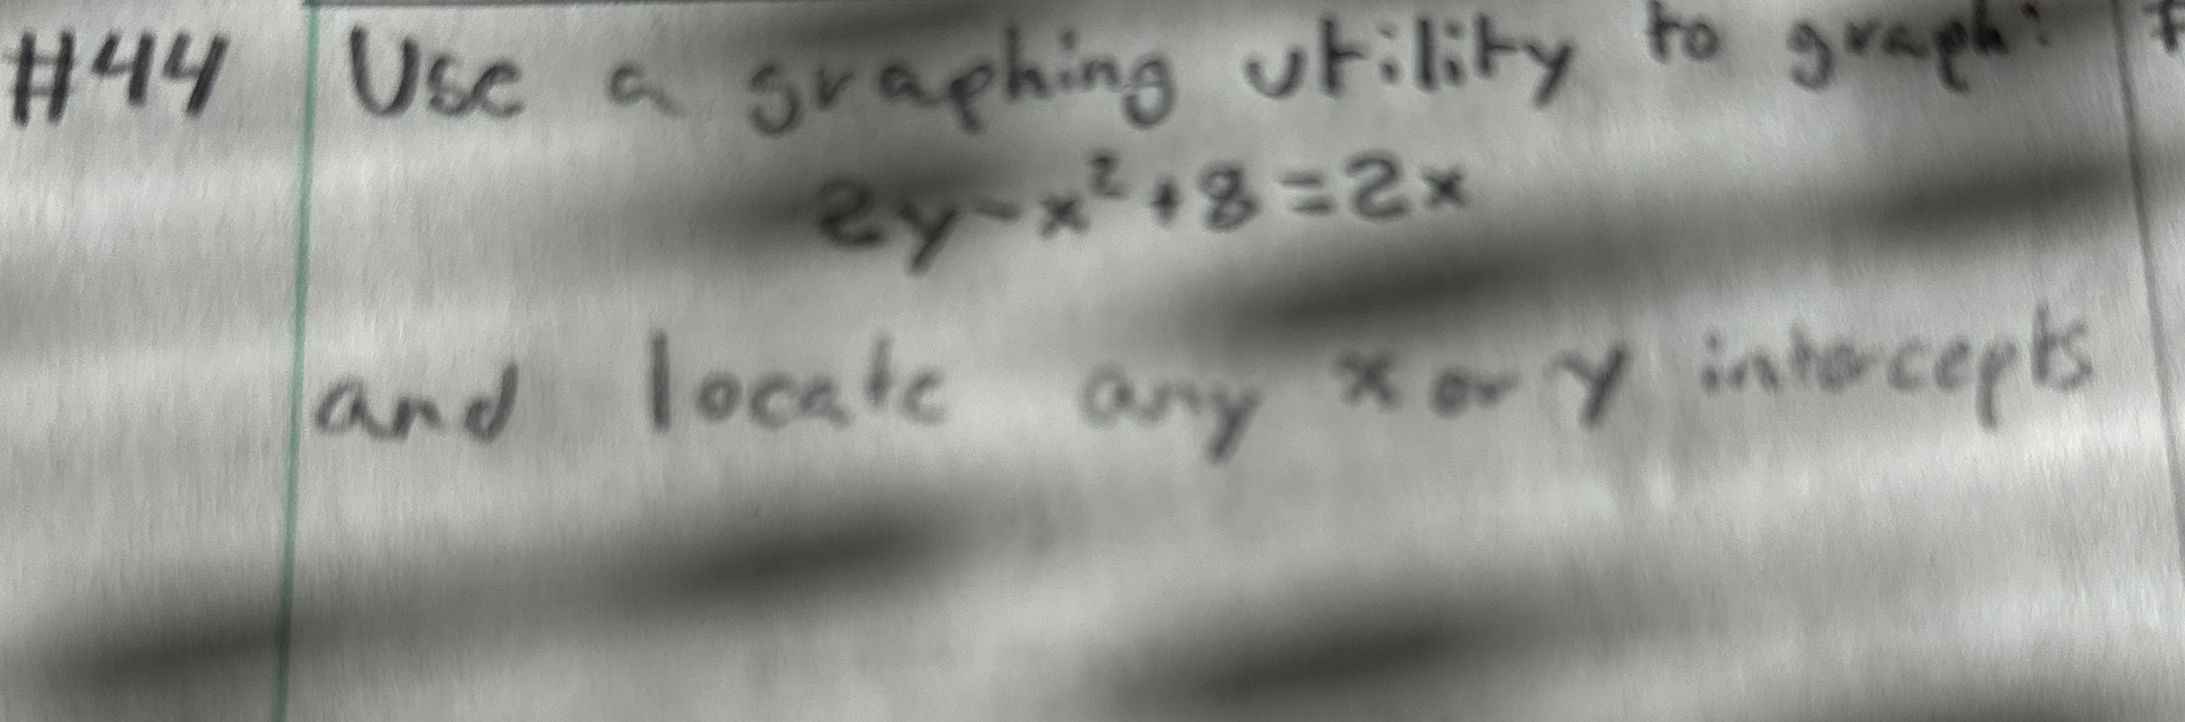 #44 Use a graphing utility to graph:
2y-x²+8=2x
and locate any x or y intercepts